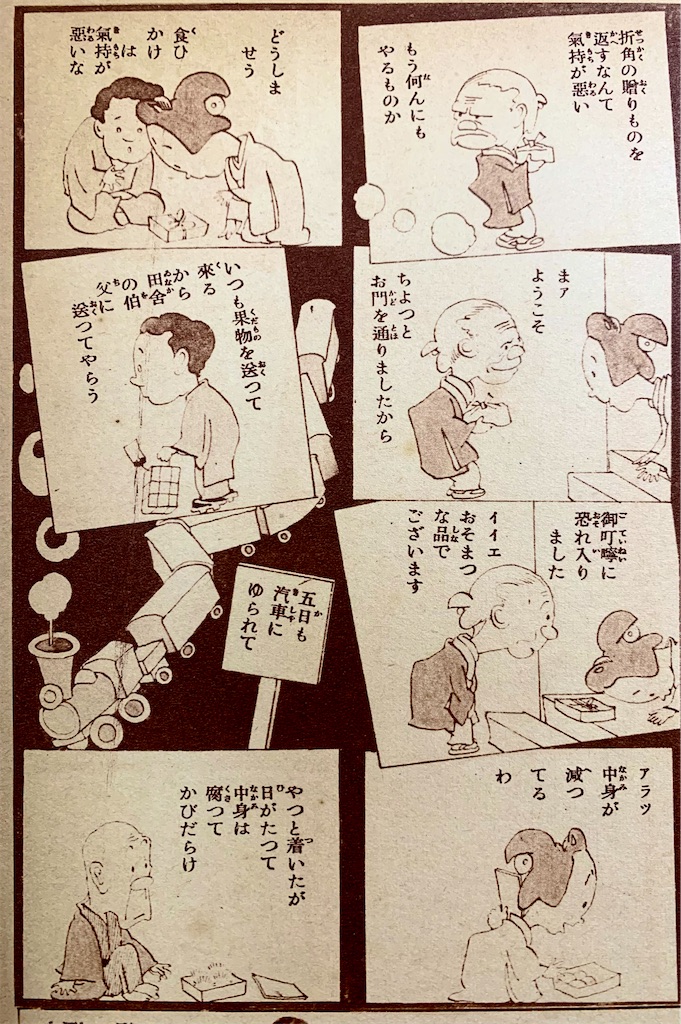 折角の贈りものを
返すなんて
氣持が悪い
もう何んにも
やるものか
まァ
ようこそ
ちよつと
お門を通りましたから
御叮嚀に
恐れ入り
ました
イイエ
おそまつ
な品で
ございます
アラッ
中身が
減つ
てる
わ
どうしま
せう
食ひ
かけ
は
氣持が
悪いな
いつも果物を送つて
來る
から
田舎
の伯
父に
送つてやらう
五日も
汽車に
ゆられて
やつと着いたが
日がたつて
中身は
腐つて
かびだらけ